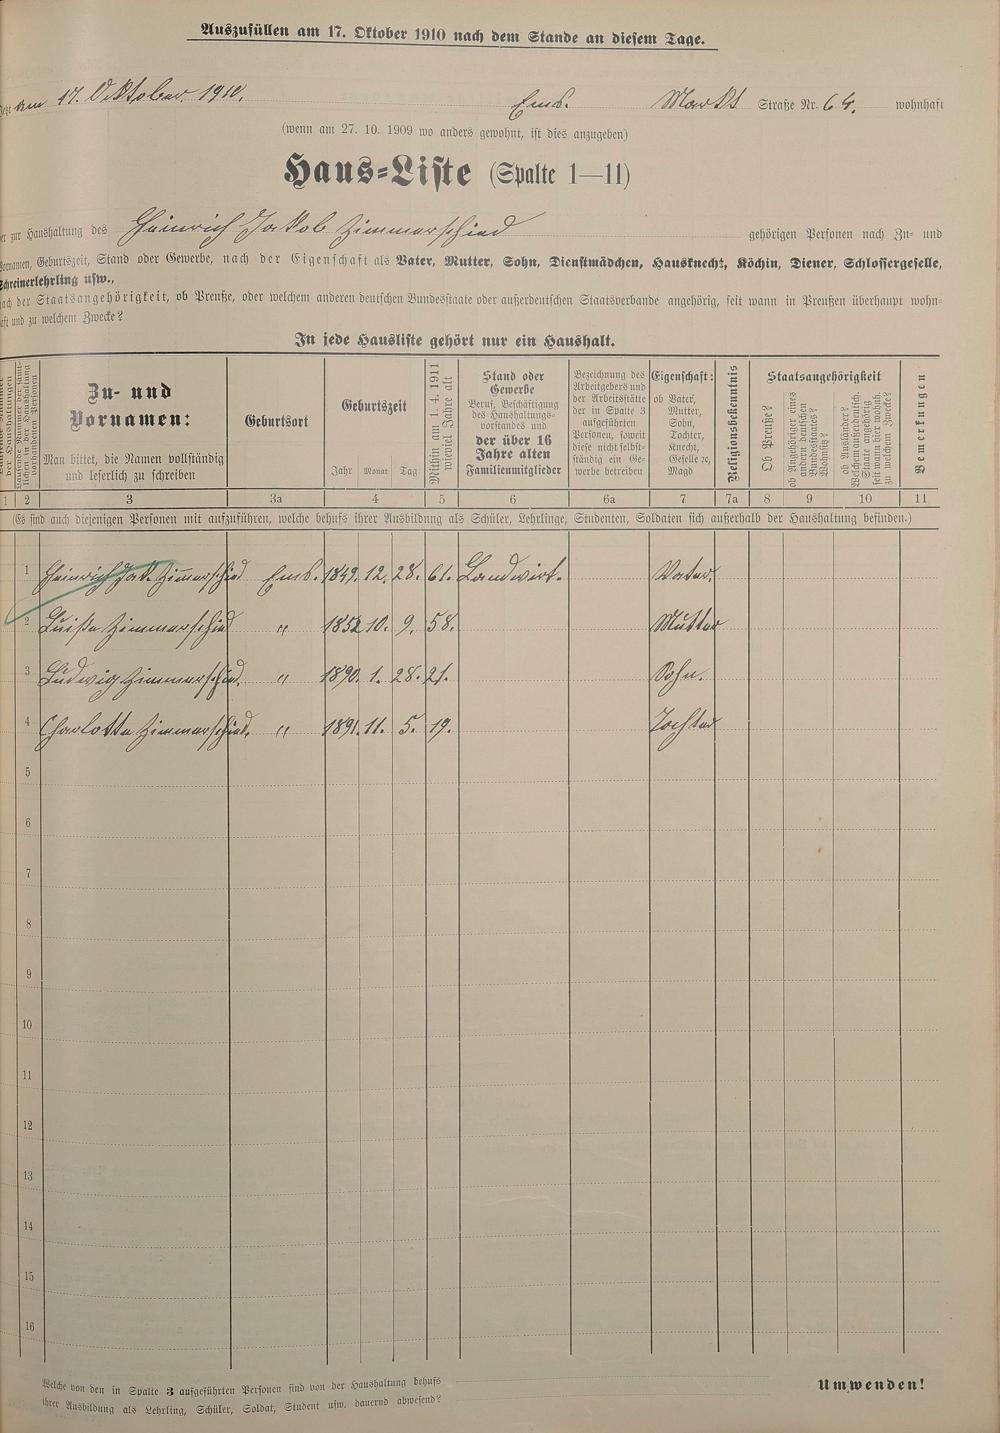 Auszufüllen am 17. Oktober 1910 nach dem Stande an diesem Tage.
am 17. Oktober 1910. Ems. Markt Straße Nr. 64. wohnhaft
(wenn am 27. 10. 1909 wo anders gewohnt, ist dies anzugeben)
Haus=Liste (Spalte 1—11)
der zur Haushaltung des Heinrich Jakob Zimmerschied gehörigen Personen nach Zu- und
Vornamen, Geburtszeit, Stand oder Gewerbe, nach der Eigenschaft als Vater, Mutter, Sohn, Dienstmädchen, Hausknecht, Köchin, Diener, Schlossergeselle,
Schreinerlehrling usw.,
nach der Staatsangehörigkeit, ob Preuße, oder welchem anderen deutschen Bundesstaate oder außerdeutschen Staatsverbande angehörig, seit wann in Preußen überhaupt wohn=
haft und zu welchem Zwecke?
In jede Hausliste gehört nur ein Haushalt.
der Haushaltungen
Laufende Nr. der sämt-
lichen in der Haushaltung
vorhandenen Personen
Zu- und
Vornamen:
Man bittet, die Namen vollständig
und leserlich zu schreiben
Geburtsort
Geburtszeit
Jahr Monat Tag
Mithin am 1. 4. 1911
wieviel Jahre alt
Stand oder
Gewerbe
Beruf, Beschäftigung
des Haushaltungs-
vorstandes und
der über 16
Jahre alten
Familienmitglieder
Bezeichnung des
Arbeitgebers und
der Arbeitsstätte
der in Spalte 3
aufgeführten
Personen, soweit
diese nicht selbst-
ständig ein Ge-
werbe betreiben
Eigenschaft:
ob Vater,
Mutter,
Sohn,
Tochter,
Knecht,
Geselle ꝛc,
Magd
Religionsbekenntnis
Staatsangehörigkeit
Ob Preuße?
ob Angehöriger eines
andern deutschen
Bundesstaates?
Wohnsitz?
ob Ausländer?
Welchem außerdeutsch.
Staate angehörig
seit wann hier wohnh.
zu welchem Zwecke?
Bemerkungen
1 2 3 3a 4 5 6 6a 7 7a 8 9 10 11
(Es sind auch diejenigen Personen mit aufzuführen, welche behufs ihrer Ausbildung als Schüler, Lehrlinge, Studenten, Soldaten sich außerhalb der Haushaltung befinden.)
1 Heinrich Jak. Zimmerschied Ems. 1849. 12. 28. 61. Landwirt. Vater.
2 Luise Zimmerschied " 1852 10. 9. 58. Mutter
3 Ludwig Zimmerschied. " 1890. 1. 28. 21. Sohn.
4 Charlotte Zimmerschied. " 1891. 11. 5. 19. Tochter
5
6
7
8
9
10
11
12
13
14
15
16
Welche von den in Spalte 3 aufgeführten Personen sind von der Haushaltung behufs
ihrer Ausbildung als Lehrling, Schüler, Soldat, Student usw. dauernd abwesend?
Umwenden!